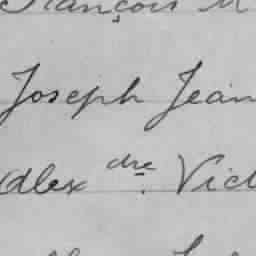 François M
Joseph Jean
Alex dre. Vict